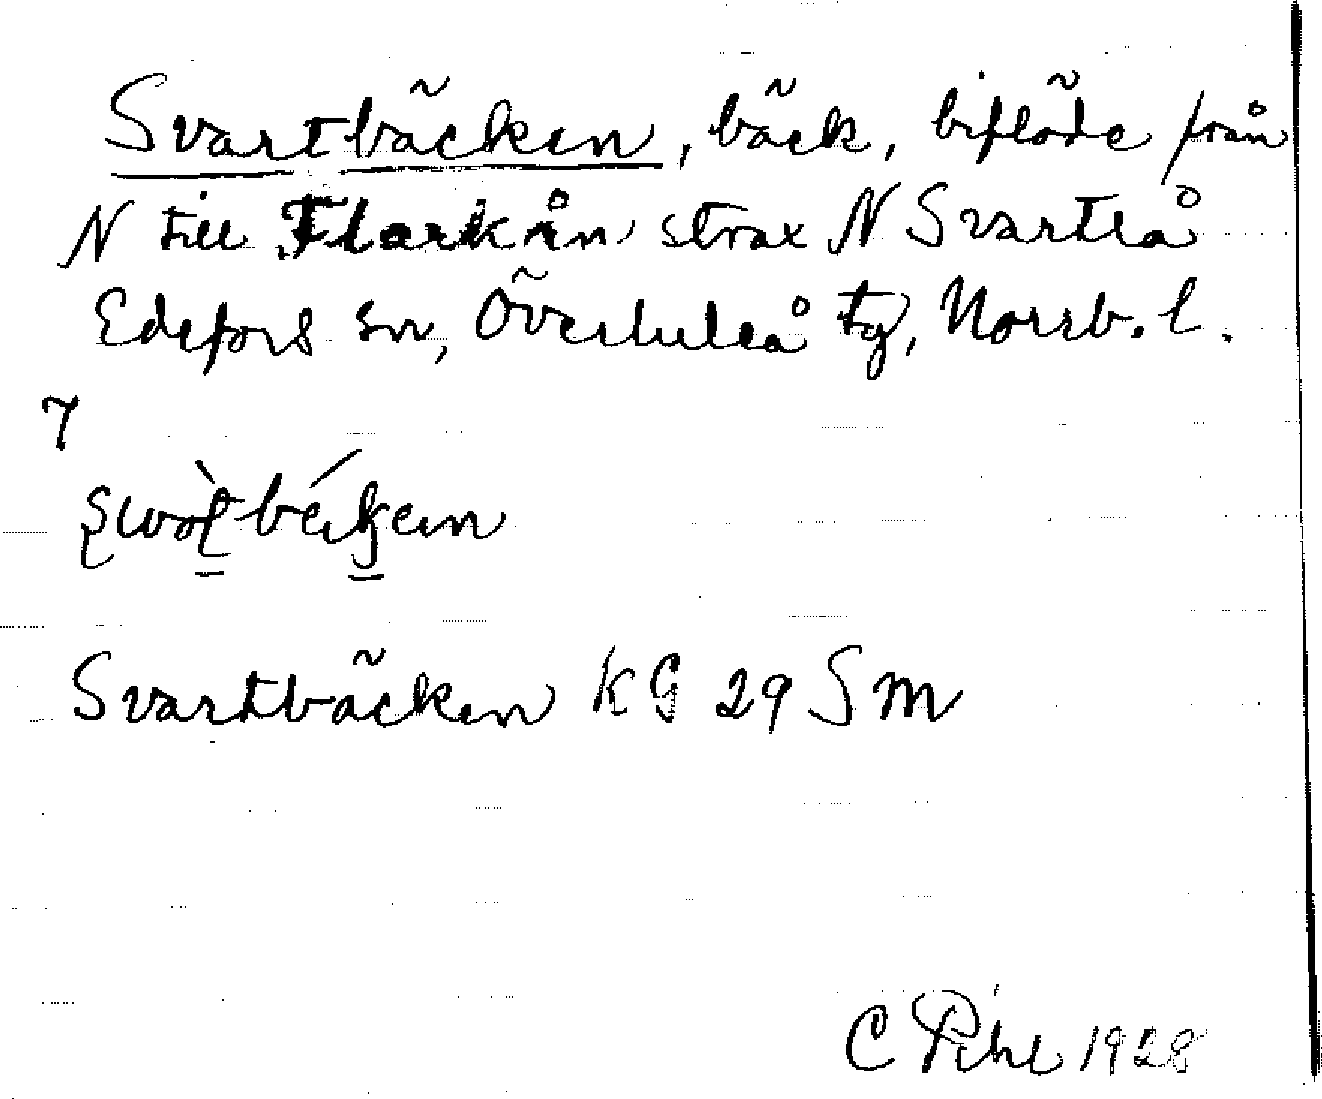 Svartbäcken, bäck, biflöde från
N till Flarkån strax N Svartlå
Edefors sn, Överluleå tg, Norrb. l.
7
Svartbäcken KG 29 SM
C Pihl 1928